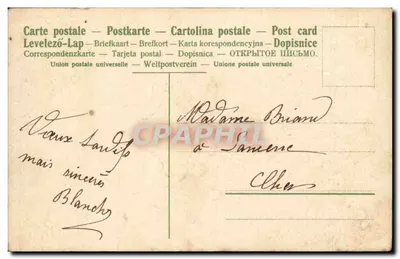 Carte postale — Postkarte — Cartolina postale — Post card
Levelező-Lap — Briefkaart — Brefkort — Karta korespondencyjna — Dopisnice
Correspondenzkarte — Tarjeta postal — Dopisnica — ОТКРЫТОЕ ПИСЬМО.
Union postale universelle — Weltpostverein — Unione postale universale
Vœux tardifs
mais sincères
Blanche
Madame Briand
à
Cher